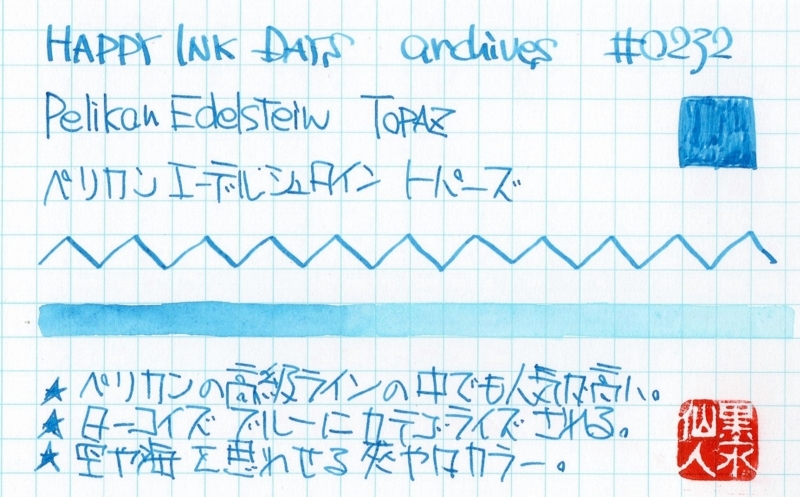 HAPPY INK DAYS archives #0232
Pelikan Edelstein TOPAZ
ペリカン エーデルシュタイン トパーズ
★ ペリカンの高級ラインの中でも人気が高い。
★ ターコイズ ブルーにカテゴライズされる。
★ 空や海を思わせる爽やなカラー。
黒水
仙人